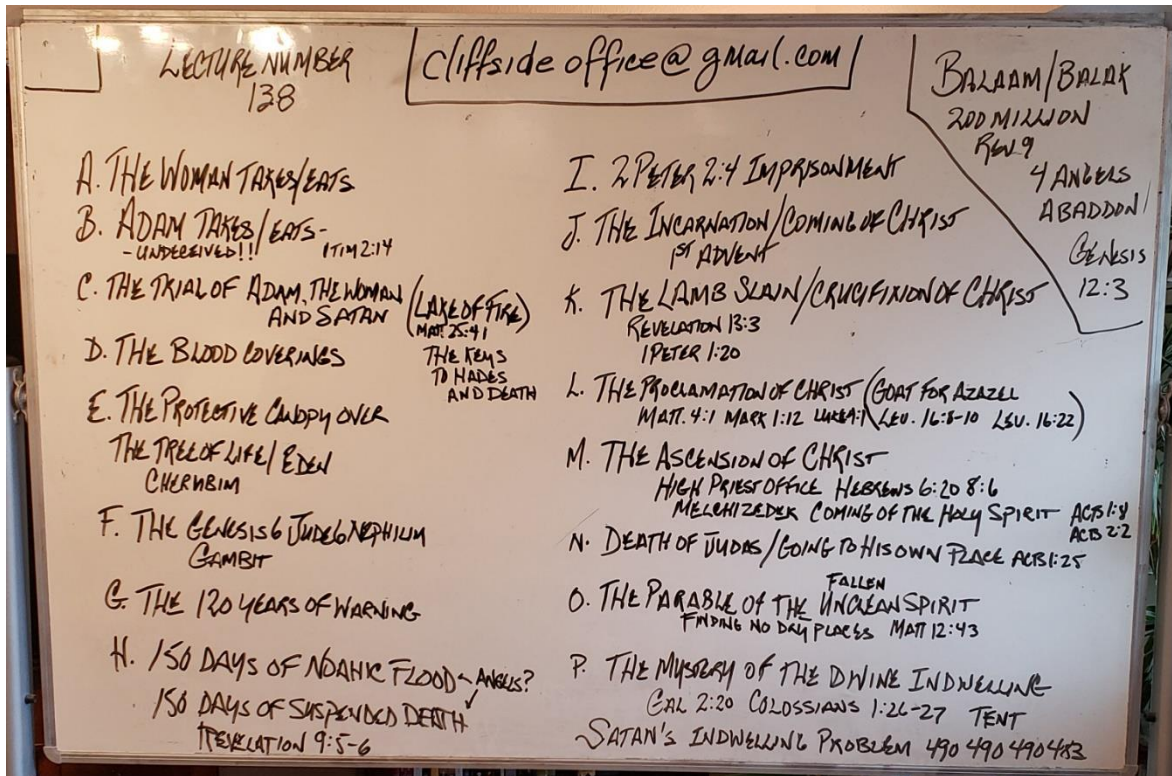 LECTURE NUMBER
138
cliffside office@gmail.com
BALAAM/BALAK
200 MILLION
REV. 9
4 ANGELS
ABADDON/
GENESIS
12:3
A. THE WOMAN TAKES/EATS
B. ADAM TAKES/EATS-
-UNDECEIVED!!! 1TIM 2:14
C. THE TRIAL OF ADAM, THE WOMAN
AND SATAN
(LAKE OF FIRE)
MATT. 25:41
THE KEYS
TO HADES
AND DEATH
D. THE BLOOD COVERINGS
E. THE PROTECTIVE CANOPY OVER
THE TREE OF LIFE/EDEN
CHERUBIM
F. THE GENESIS 6 JUDE 6 NEPHILIM
GAMBIT
G. THE 120 YEARS OF WARNING
H. 150 DAYS OF NOAHIC FLOOD - ANGELS?
150 DAYS OF SUSPENDED DEATH
REVELATION 9:5-6
I. 2 PETER 2:4 IMPRISONMENT
J. THE INCARNATION/COMING OF CHRIST
1ST ADVENT
K. THE LAMB SLAIN/CRUCIFIXION OF CHRIST
REVELATION 13:3
1 PETER 1:20
L. THE PROCLAMATION OF CHRIST (GOAT FOR AZAZEL
MATT. 4:1 MARK 1:12 LUKE 4:1 LEV. 16:8-10 LEV. 16:22)
M. THE ASCENSION OF CHRIST
HIGH PRIEST OFFICE HEBREWS 6:20 8:6
MELCHIZEDEK COMING OF THE HOLY SPIRIT ACTS 1:8
ACTS 2:2
N. DEATH OF JUDAS/GOING TO HIS OWN PLACE ACTS 1:25
FALLEN
O. THE PARABLE OF THE UNCLEAN SPIRIT
FINDING NO DRY PLACES MATT 12:43
P. THE MYSTERY OF THE DIVINE INDWELLING
GAL 2:20 COLOSSIANS 1:26-27 TENT
SATAN'S INDWELLING PROBLEM 490 490 490 483